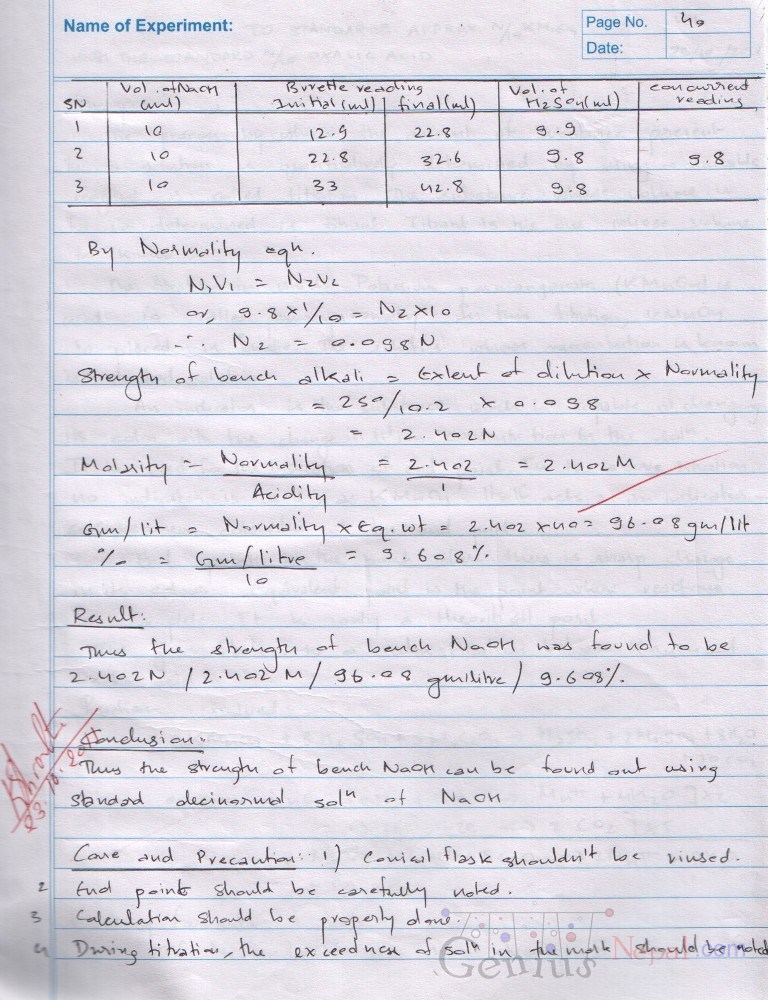 Name of Experiment:
Page No. 40
Date:
SN | Vol. of NaOH (ml) | Burette reading Initial (ml) | final (ml) | Vol. of H2SO4 (ml) | concurrent reading
1 | 10 | 12.9 | 22.8 | 9.9
2 | 10 | 22.8 | 32.6 | 9.8 | 9.8
3 | 10 | 33 | 42.8 | 9.8
By Normality eqn.
N1V1 = N2V2
or, 9.8 × 1/10 = N2 × 10
∴ N2 = 0.098N
Strength of bench alkali = Extent of dilution × Normality
= 250/10.2 × 0.098
= 2.402N
Molarity = Normality / Acidity = 2.402 / 1 = 2.402 M
Gm/lit = Normality × Eq. wt = 2.402 × 40 = 96.08 gm/lit
% = Gm/litre / 10 = 9.608%.
Result:
Thus the strength of bench NaOH was found to be
2.402N / 2.402 M / 96.08 gm/litre / 9.608%.
Conclusion:
Thus the strength of bench NaOH can be found out using
standard decinormal soln of NaOH
Care and Precaution: 1) Conical flask shouldn't be rinsed.
2 End points should be carefully noted.
3 Calculation should be properly done.
4 During titration, the exceedness of soln in the mark should be noted
Genius Nepal.com